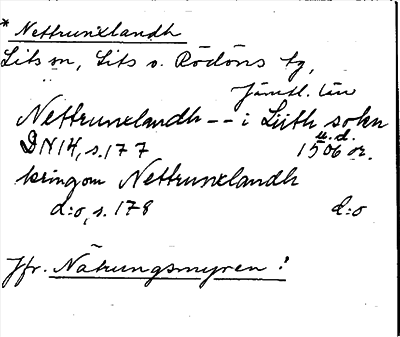 * Nettrunxlandh
Lits sn, Lits o. Rödöns tg,
Jämtl. län
Nettrunxlandh -- i Liith sokn
u.d.
DN 14, s. 177 1506 or.
kringom Nettrunxlandh
d:o, s. 178 d:o
Jfr. Näkungsmyren!